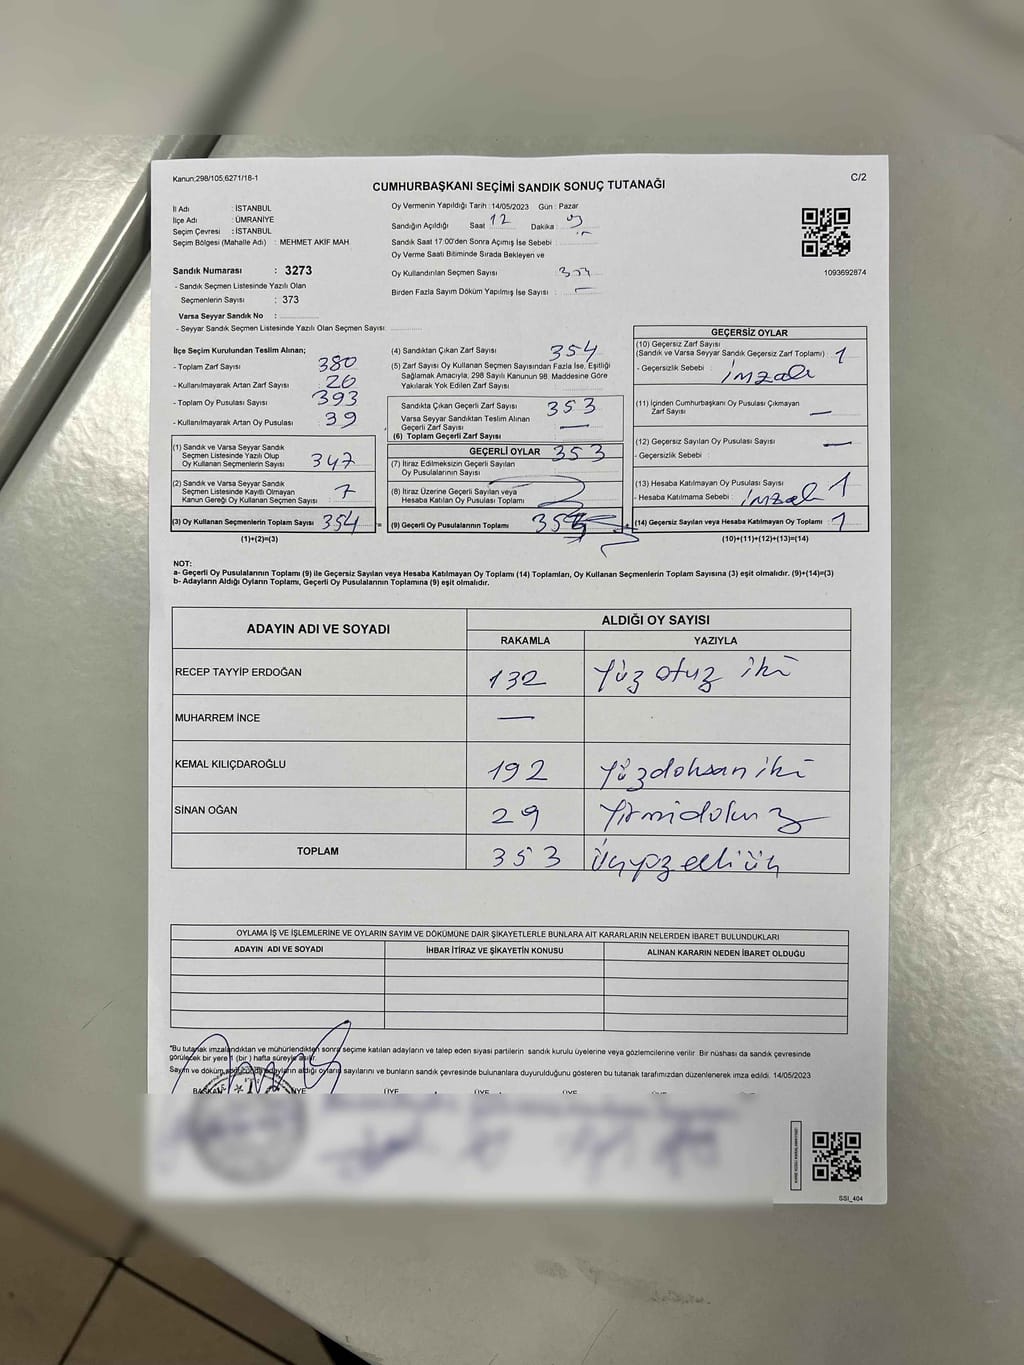 Kanun;298/105;6271/18-1
C/2
CUMHURBAŞKANI SEÇİMİ SANDIK SONUÇ TUTANAĞI
İl Adı : İSTANBUL
İlçe Adı : ÜMRANİYE
Seçim Çevresi : İSTANBUL
Seçim Bölgesi (Mahalle Adı) : MEHMET AKİF MAH.
Oy Vermenin Yapıldığı Tarih : 14/05/2023 Gün : Pazar
Sandığın Açıldığı Saat 12 Dakika :
Sandık Saat 17:00'den Sonra Açımış İse Sebebi :
Oy Verme Saati Bitiminde Sırada Bekleyen ve
Oy Kullandırılan Seçmen Sayısı :
Birden Fazla Sayım Döküm Yapılmış İse Sayısı : —
1093692874
Sandık Numarası : 3273
- Sandık Seçmen Listesinde Yazılı Olan
Seçmenlerin Sayısı : 373
Varsa Seyyar Sandık No :
- Seyyar Sandık Seçmen Listesinde Yazılı Olan Seçmen Sayısı:
İlçe Seçim Kurulundan Teslim Alınan;
- Toplam Zarf Sayısı : 380
- Kullanılmayarak Artan Zarf Sayısı : 26
- Toplam Oy Pusulası Sayısı : 393
- Kullanılmayarak Artan Oy Pusulası : 39
(1) Sandık ve Varsa Seyyar Sandık
Seçmen Listesinde Yazılı Olup
Oy Kullanan Seçmenlerin Sayısı : 347
(2) Sandık ve Varsa Seyyar Sandık
Seçmen Listesinde Kayıtlı Olmayan
Kanun Gereği Oy Kullanan Seçmen Sayısı : 7
(3) Oy Kullanan Seçmenlerin Toplam Sayısı : 354
(1)+(2)=(3)
(4) Sandıktan Çıkan Zarf Sayısı : 354
(5) Zarf Sayısı Oy Kullanan Seçmen Sayısından Fazla İse, Eşitliği
Sağlamak Amacıyla, 298 Sayılı Kanunun 98. Maddesine Göre
Yakılarak Yok Edilen Zarf Sayısı :
Sandıkta Çıkan Geçerli Zarf Sayısı : 353
Varsa Seyyar Sandıktan Teslim Alınan
Geçerli Zarf Sayısı : —
(6) Toplam Geçerli Zarf Sayısı : 353
GEÇERLİ OYLAR
(7) İtiraz Edilmeksizin Geçerli Sayılan
Oy Pusulalarının Sayısı :
(8) İtiraz Üzerine Geçerli Sayılan veya
Hesaba Katılan Oy Pusulası Toplamı :
(9) Geçerli Oy Pusulalarının Toplamı :
GEÇERSİZ OYLAR
(10) Geçersiz Zarf Sayısı
(Sandık ve Varsa Seyyar Sandık Geçersiz Zarf Toplamı) : 1
- Geçersizlik Sebebi : imzalı
(11) İçinden Cumhurbaşkanı Oy Pusulası Çıkmayan
Zarf Sayısı : —
(12) Geçersiz Sayılan Oy Pusulası Sayısı : —
- Geçersizlik Sebebi :
(13) Hesaba Katılmayan Oy Pusulası Sayısı : 1
- Hesaba Katılmama Sebebi : imzalı
(14) Geçersiz Sayılan veya Hesaba Katılmayan Oy Toplamı : 1
(10)+(11)+(12)+(13)=(14)
NOT:
a- Geçerli Oy Pusulalarının Toplamı (9) ile Geçersiz Sayılan veya Hesaba Katılmayan Oy Toplamı (14) Toplamları, Oy Kullanan Seçmenlerin Toplam Sayısına (3) eşit olmalıdır. (9)+(14)=(3)
b- Adayların Aldığı Oyların Toplamı, Geçerli Oy Pusulalarının Toplamına (9) eşit olmalıdır.
ADAYIN ADI VE SOYADI
ALDIĞI OY SAYISI
RAKAMLA YAZIYLA
RECEP TAYYİP ERDOĞAN 132 Yüz otuz iki
MUHARREM İNCE —
KEMAL KILIÇDAROĞLU 192 Yüzdoksan iki
SİNAN OĞAN 29 Yirmidokuz
TOPLAM 353 Üçyüzelliüç
OYLAMA İŞ VE İŞLEMLERİNE VE OYLARIN SAYIM VE DÖKÜMÜNE DAİR ŞİKAYETLERLE BUNLARA AİT KARARLARIN NELERDEN İBARET BULUNDUKLARI
ADAYIN ADI VE SOYADI İHBAR İTİRAZ VE ŞİKAYETİN KONUSU ALINAN KARARIN NEDEN İBARET OLDUĞU
*Bu tutanak imzalandıktan ve mühürlendikten sonra seçime katılan adayların ve talep eden siyasi partilerin sandık kurulu üyelerine veya gözlemcilerine verilir. Bir nüshası da sandık çevresinde
görülecek bir yere 1 (bir) hafta süreyle asılır.
Sayım ve döküm adayların aldığı oyların sayılarını ve bunların sandık çevresinde bulunanlara duyurulduğunu gösteren bu tutanak tarafımızdan düzenlenerek imza edildi. 14/05/2023
BAŞKAN ÜYE ÜYE ÜYE ÜYE ÜYE ÜYE
SSI_404